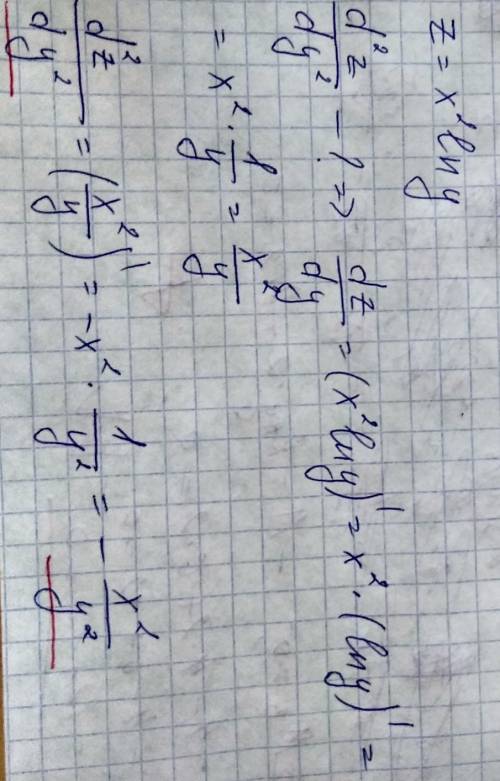 z = x² ln y
d²z/dy² - ? => dz/dy = (x² ln y)' = x² · (ln y)' =
= x² · 1/y = x²/y
d²z/dy² = (x²/y)' = -x² · 1/y² = - x²/y²